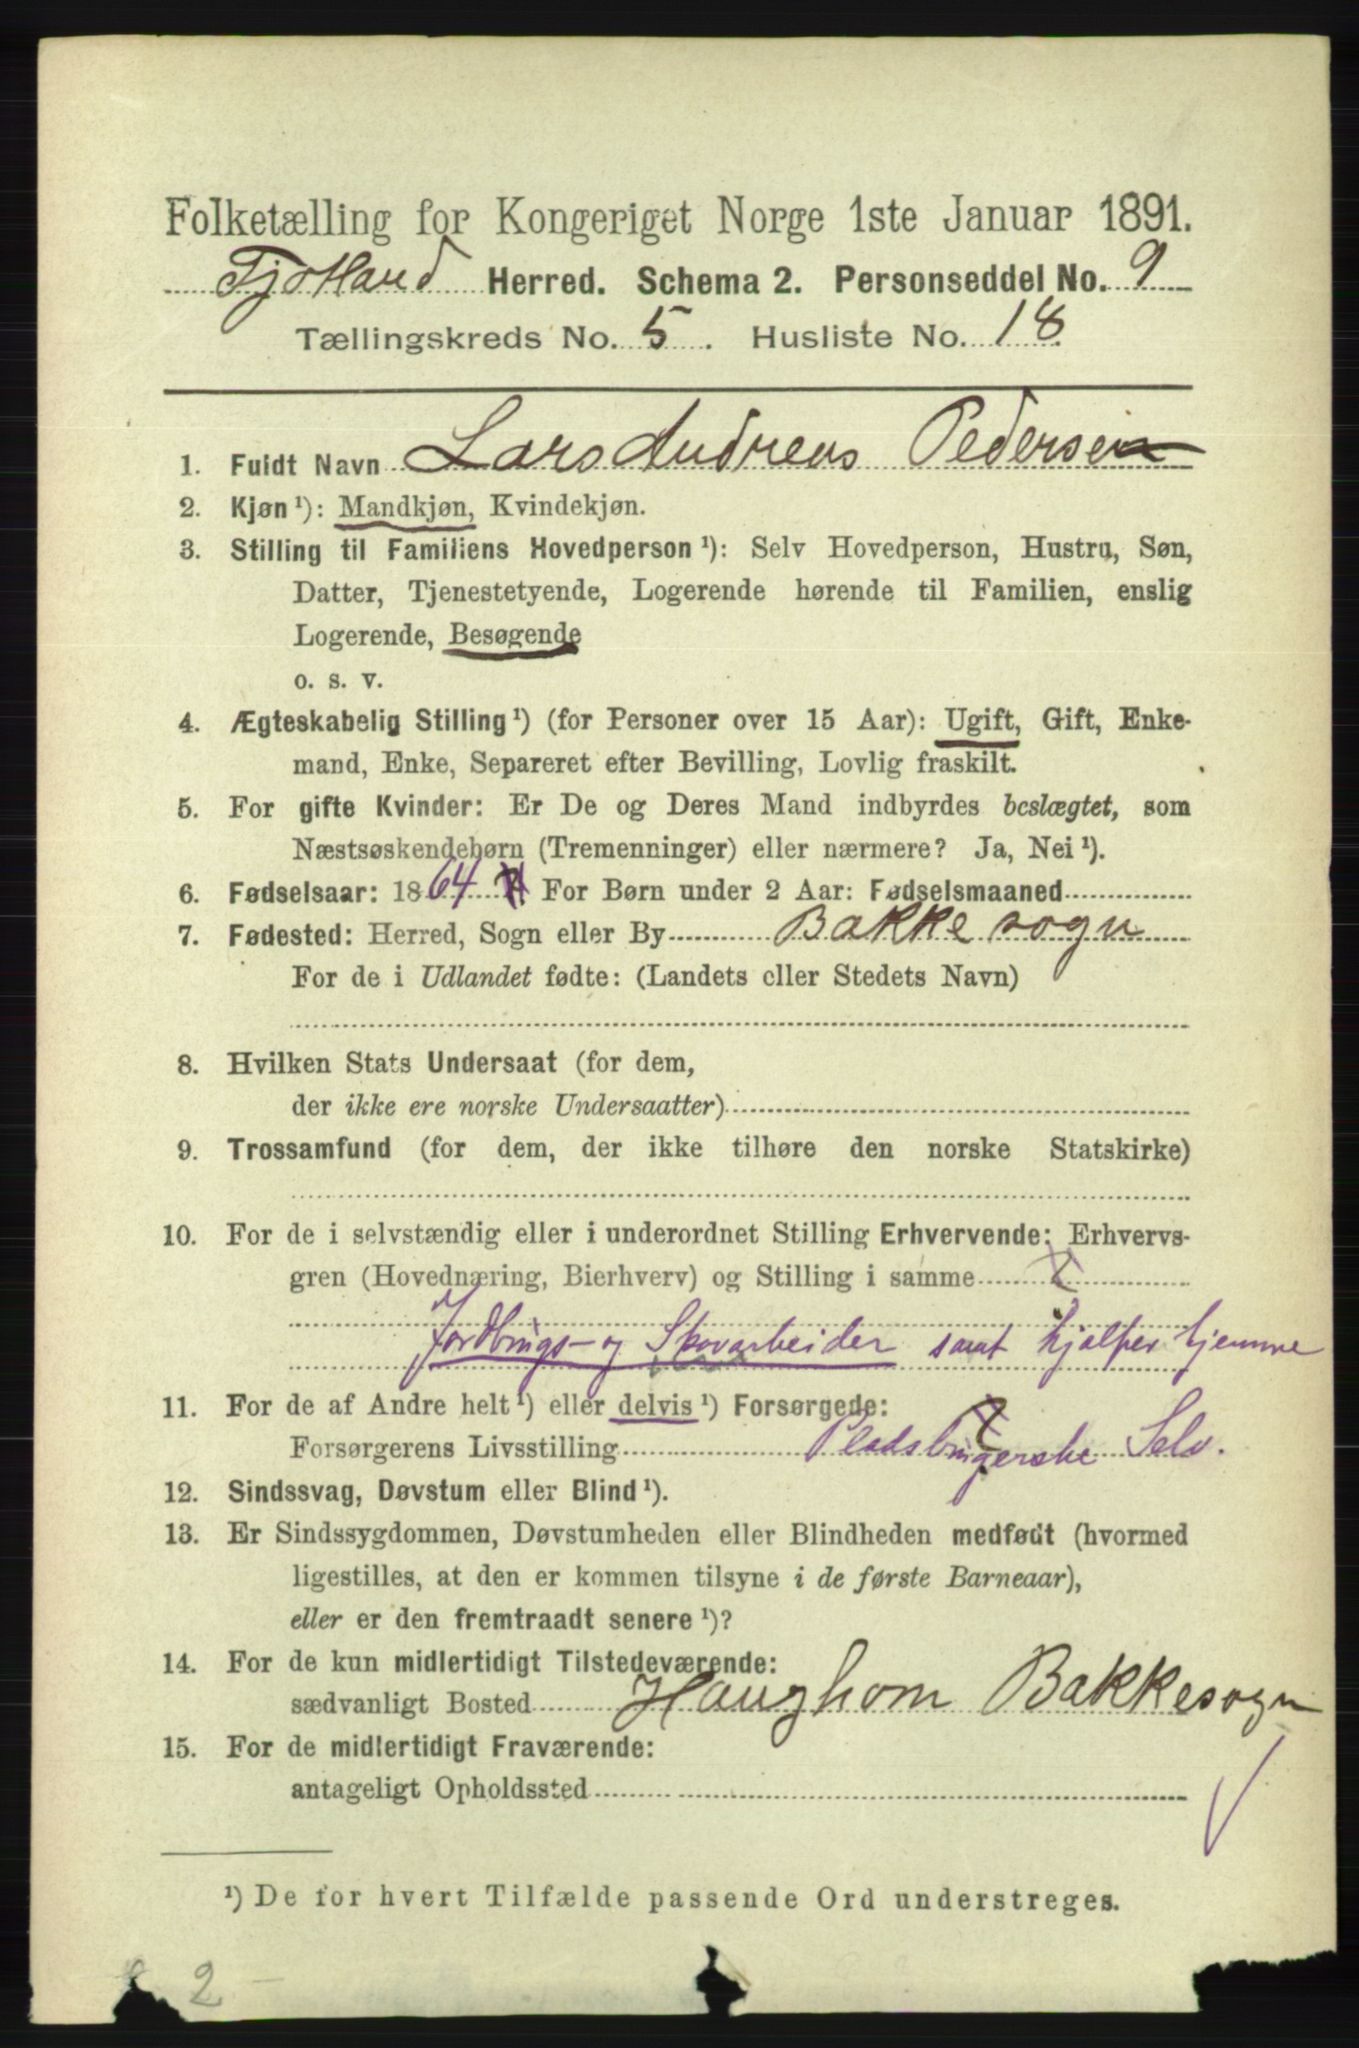 Folketælling for Kongeriget Norge 1ste Januar 1891.
Fjotland Herred. Schema 2. Personseddel No. 9
Tællingskreds No. 5. Husliste No. 18
1. Fuldt Navn Lars Andreas Pedersen
2. Kjøn ¹): Mandkjøn, Kvindekjøn.
3. Stilling til Familiens Hovedperson ¹): Selv Hovedperson, Hustru, Søn,
Datter, Tjenestetyende, Logerende hørende til Familien, enslig
Logerende, Besøgende
o. s. v.
4. Ægteskabelig Stilling ¹) (for Personer over 15 Aar): Ugift, Gift, Enke-
mand, Enke, Separeret efter Bevilling, Lovlig fraskilt.
5. For gifte Kvinder: Er De og Deres Mand indbyrdes beslægtet, som
Næstsøskendebørn (Tremenninger) eller nærmere? Ja, Nei ¹).
6. Fødselsaar: 1864 For Børn under 2 Aar: Fødselsmaaned
7. Fødested: Herred, Sogn eller By Bakke sogn
For de i Udlandet fødte: (Landets eller Stedets Navn)
8. Hvilken Stats Undersaat (for dem,
der ikke ere norske Undersaatter)
9. Trossamfund (for dem, der ikke tilhøre den norske Statskirke)
10. For de i selvstændig eller i underordnet Stilling Erhvervende: Erhvervs-
gren (Hovednæring, Bierhverv) og Stilling i samme
Jordbrugs- og Skovarbeider samt hjælper hjemme
11. For de af Andre helt ¹) eller delvis ¹) Forsørgede:
Forsørgerens Livsstilling Pladsbrugerske Selv.
12. Sindssvag, Døvstum eller Blind ¹).
13. Er Sindssygdommen, Døvstumheden eller Blindheden medfødt (hvormed
ligestilles, at den er kommen tilsyne i de første Barneaar),
eller er den fremtraadt senere ¹)?
14. For de kun midlertidigt Tilstedeværende:
sædvanligt Bosted Haughom Bakkesogn
15. For de midlertidigt Fraværende:
antageligt Opholdssted
¹) De for hvert Tilfælde passende Ord understreges.
2